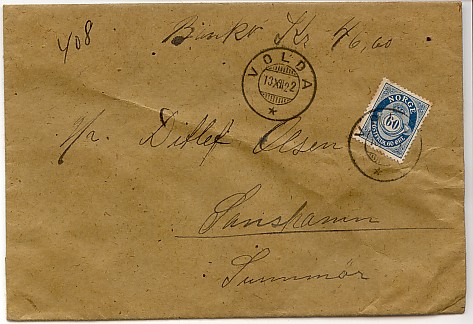 408
Banko Kr 46,00
VOLDA
13XII22
NORGE
60
V
Hr. Ditlef Olsen
Sunnmör